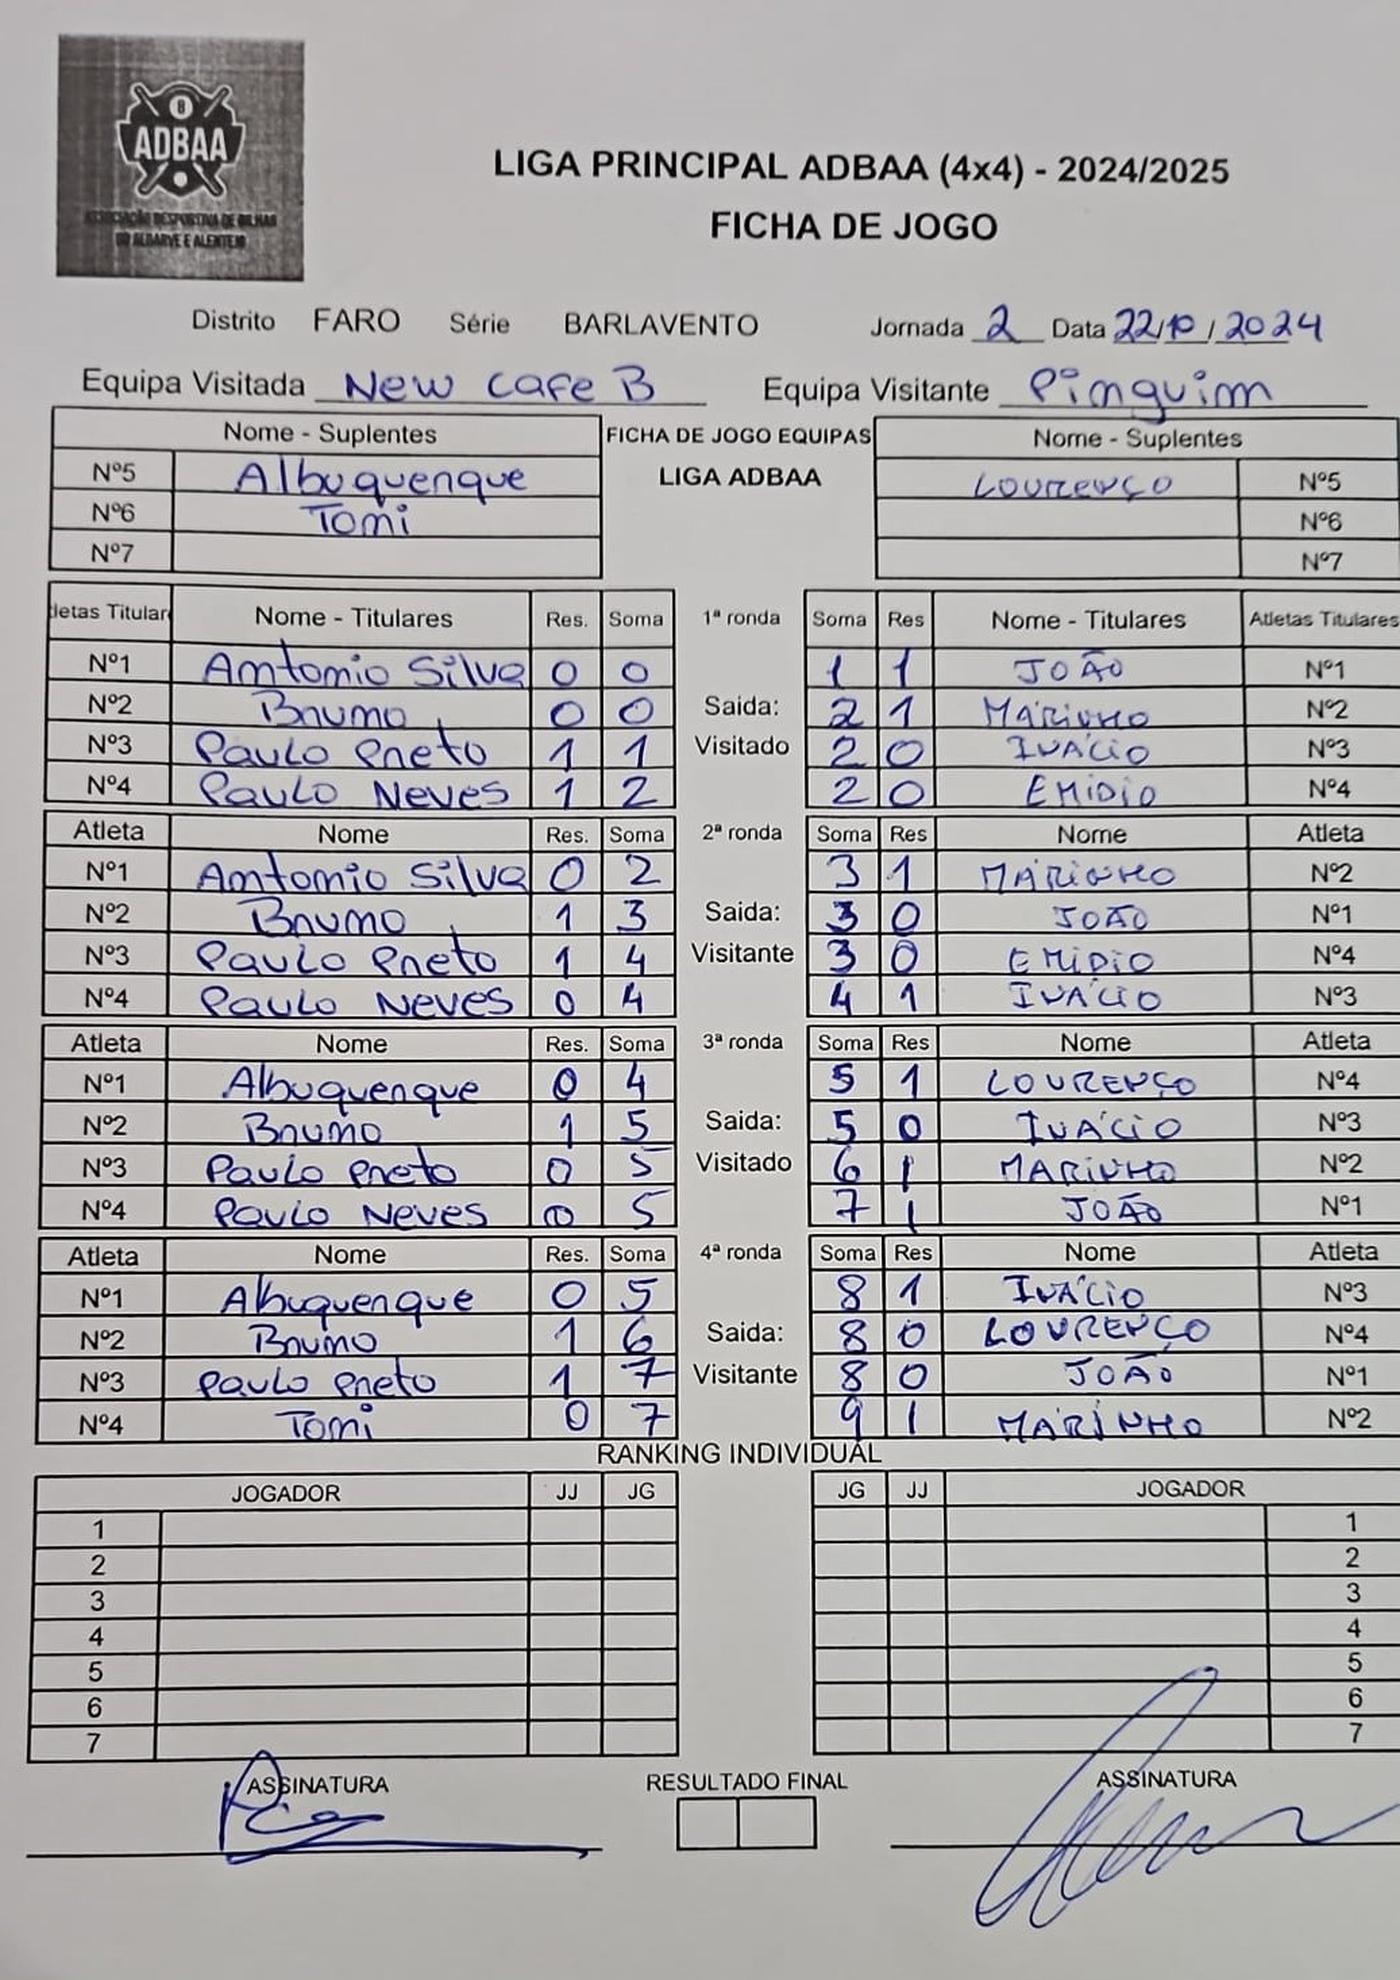 8
ADBAA
ASSOCIAÇÃO DESPORTIVA DE BILHAR
DO ALGARVE E ALENTEJO
LIGA PRINCIPAL ADBAA (4x4) - 2024/2025
FICHA DE JOGO
Distrito FARO Série BARLAVENTO Jornada 2 Data 22/10/2024
Equipa Visitada New Cafe B Equipa Visitante Pinguim
Nome - Suplentes FICHA DE JOGO EQUIPAS Nome - Suplentes
Nº5 Albuquerque LIGA ADBAA LOURENÇO Nº5
Nº6 Tomi Nº6
Nº7 Nº7
letas Titular Nome - Titulares Res. Soma 1ª ronda Soma Res Nome - Titulares Atletas Titulares
Nº1 Antonio Silva 0 0 1 1 JOÃO Nº1
Nº2 Bruno 0 0 Saida: 2 1 MARINHO Nº2
Nº3 Paulo Preto 1 1 Visitado 2 0 INÁCIO Nº3
Nº4 Paulo Neves 1 2 2 0 EMIDIO Nº4
Atleta Nome Res. Soma 2ª ronda Soma Res Nome Atleta
Nº1 Antonio Silva 0 2 3 1 MARINHO Nº2
Nº2 Bruno 1 3 Saida: 3 0 JOÃO Nº1
Nº3 Paulo Preto 1 4 Visitante 3 0 EMIDIO Nº4
Nº4 Paulo Neves 0 4 4 1 INÁCIO Nº3
Atleta Nome Res. Soma 3ª ronda Soma Res Nome Atleta
Nº1 Albuquerque 0 4 5 1 LOURENÇO Nº4
Nº2 Bruno 1 5 Saida: 5 0 INÁCIO Nº3
Nº3 Paulo Preto 0 5 Visitado 6 1 MARINHO Nº2
Nº4 Paulo Neves 0 5 7 1 JOÃO Nº1
Atleta Nome Res. Soma 4ª ronda Soma Res Nome Atleta
Nº1 Albuquerque 0 5 8 1 INÁCIO Nº3
Nº2 Bruno 1 6 Saida: 8 0 LOURENÇO Nº4
Nº3 Paulo Preto 1 7 Visitante 8 0 JOÃO Nº1
Nº4 Tomi 0 7 9 1 MARINHO Nº2
RANKING INDIVIDUAL
JOGADOR JJ JG JG JJ JOGADOR
1 1
2 2
3 3
4 4
5 5
6 6
7 7
ASSINATURA RESULTADO FINAL ASSINATURA